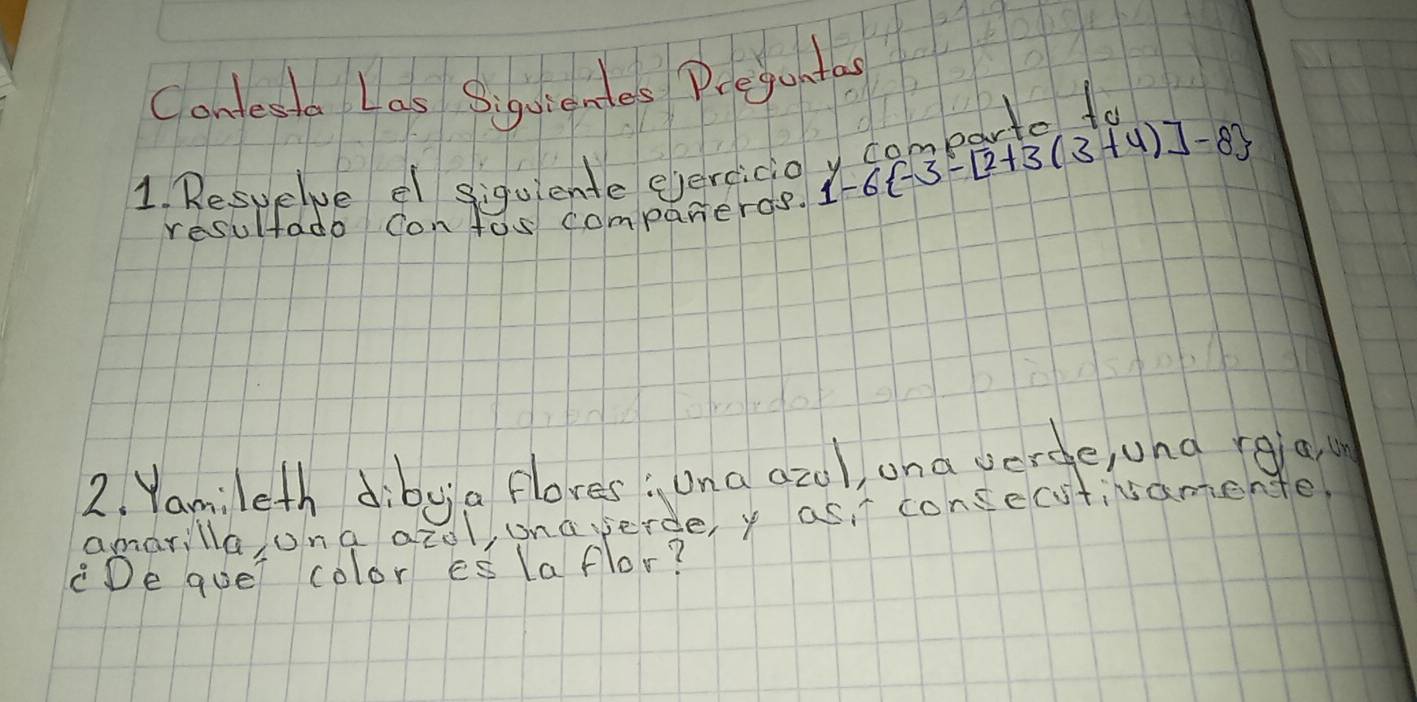 Contesta Las Siguientes Preguntas
1. Resuelve el siguiente ejercicio y comparte tu
resultado con tus compañeros. 1-6{-3-[2+3(3+4)]-8}
2. Yamileth dibuja flores: una azul, una verde, una roja, un
amarilla, una azul, una verde, y así consecutivamente.
¿De qué color es la flor?